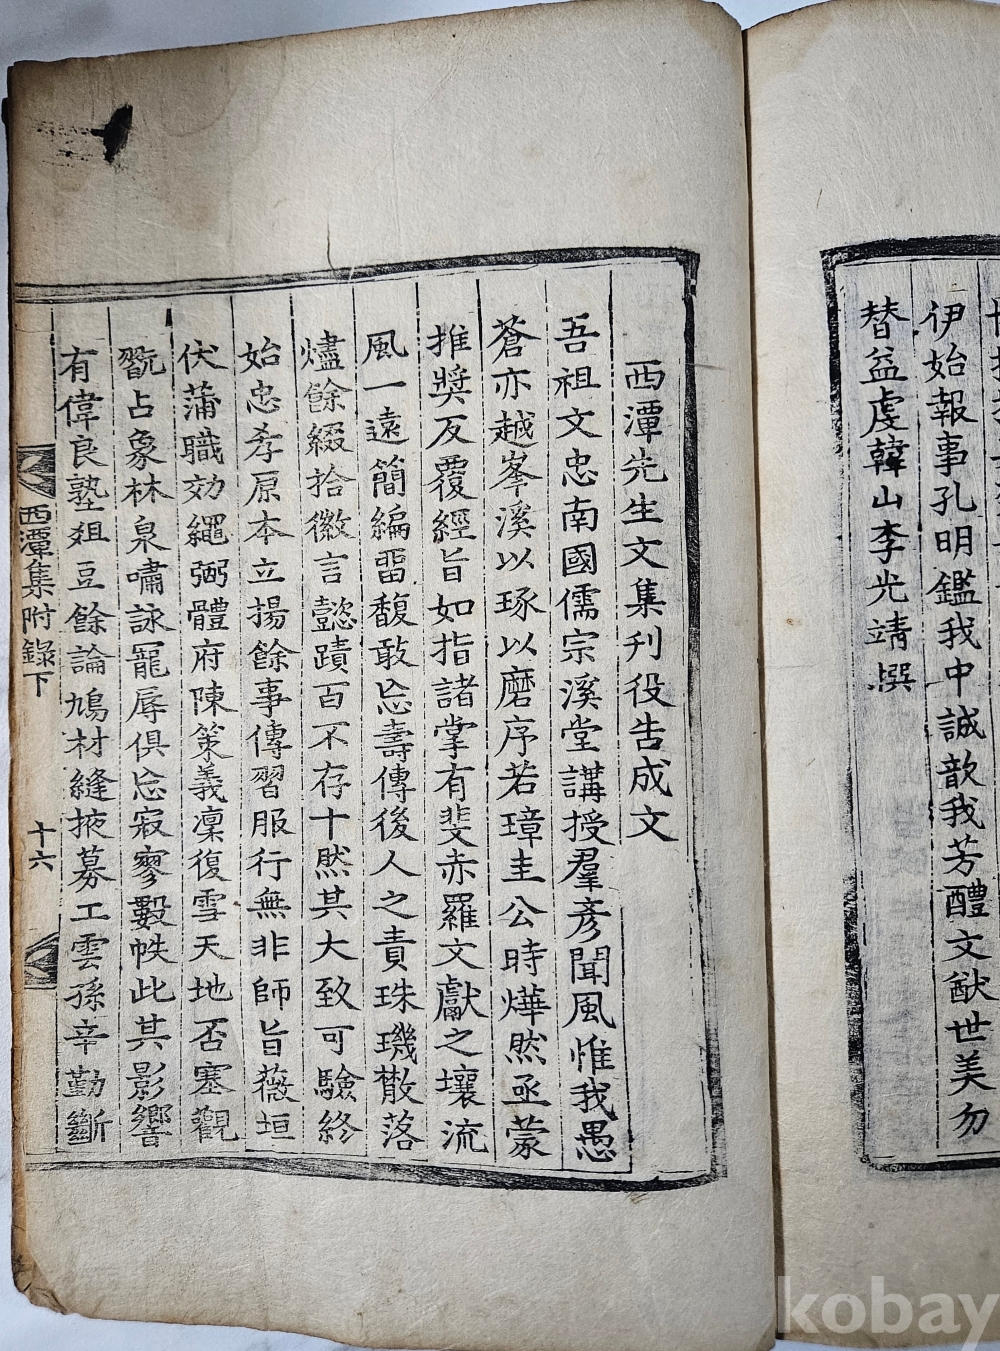 伊始報事孔明鑑我中誠歆我芳醴文猷世美勿
替益虔韓山李光靖撰
西潭先生文集刊役告成文
吾祖文忠南國儒宗溪堂講授羣彦聞風惟我愚
蒼亦越峯溪以琢以磨序若璋圭公時燁然亟蒙
推奬反覆經旨如指諸掌有斐赤羅文獻之壤流
風一遠簡編留馥敢忘壽傳後人之責珠璣散落
燼餘綴拾徽言懿蹟百不存十然其大致可驗終
始忠孝原本立揚餘事傳習服行無非師旨薇垣
伏蒲職効繩弼體府陳策義凜復雪天地否塞觀
翫占象林泉嘯詠寵辱俱忘寂寥數帙此其影響
有偉良塾俎豆餘論鳩材縫掖募工雲孫辛勤斷
西潭集附錄下
十六
kobay